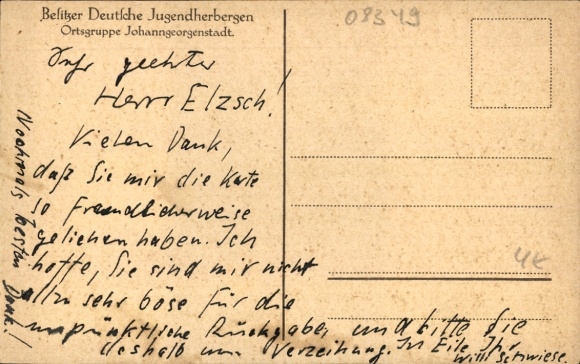 Besitzer Deutsche Jugendherbergen
Ortsgruppe Johanngeorgenstadt.
08349
Sehr geehrter
Herr Elzsch!
Vielen Dank,
daß Sie mir die Karte
so freundlicherweise
geliehen haben. Ich
hoffe, Sie sind mir nicht
allzu sehr böse für die
unpünktliche Rückgabe, und bitte Sie
deshalb um Verzeihung. In Eile Ihr
Nochmals besten Dank!
4€